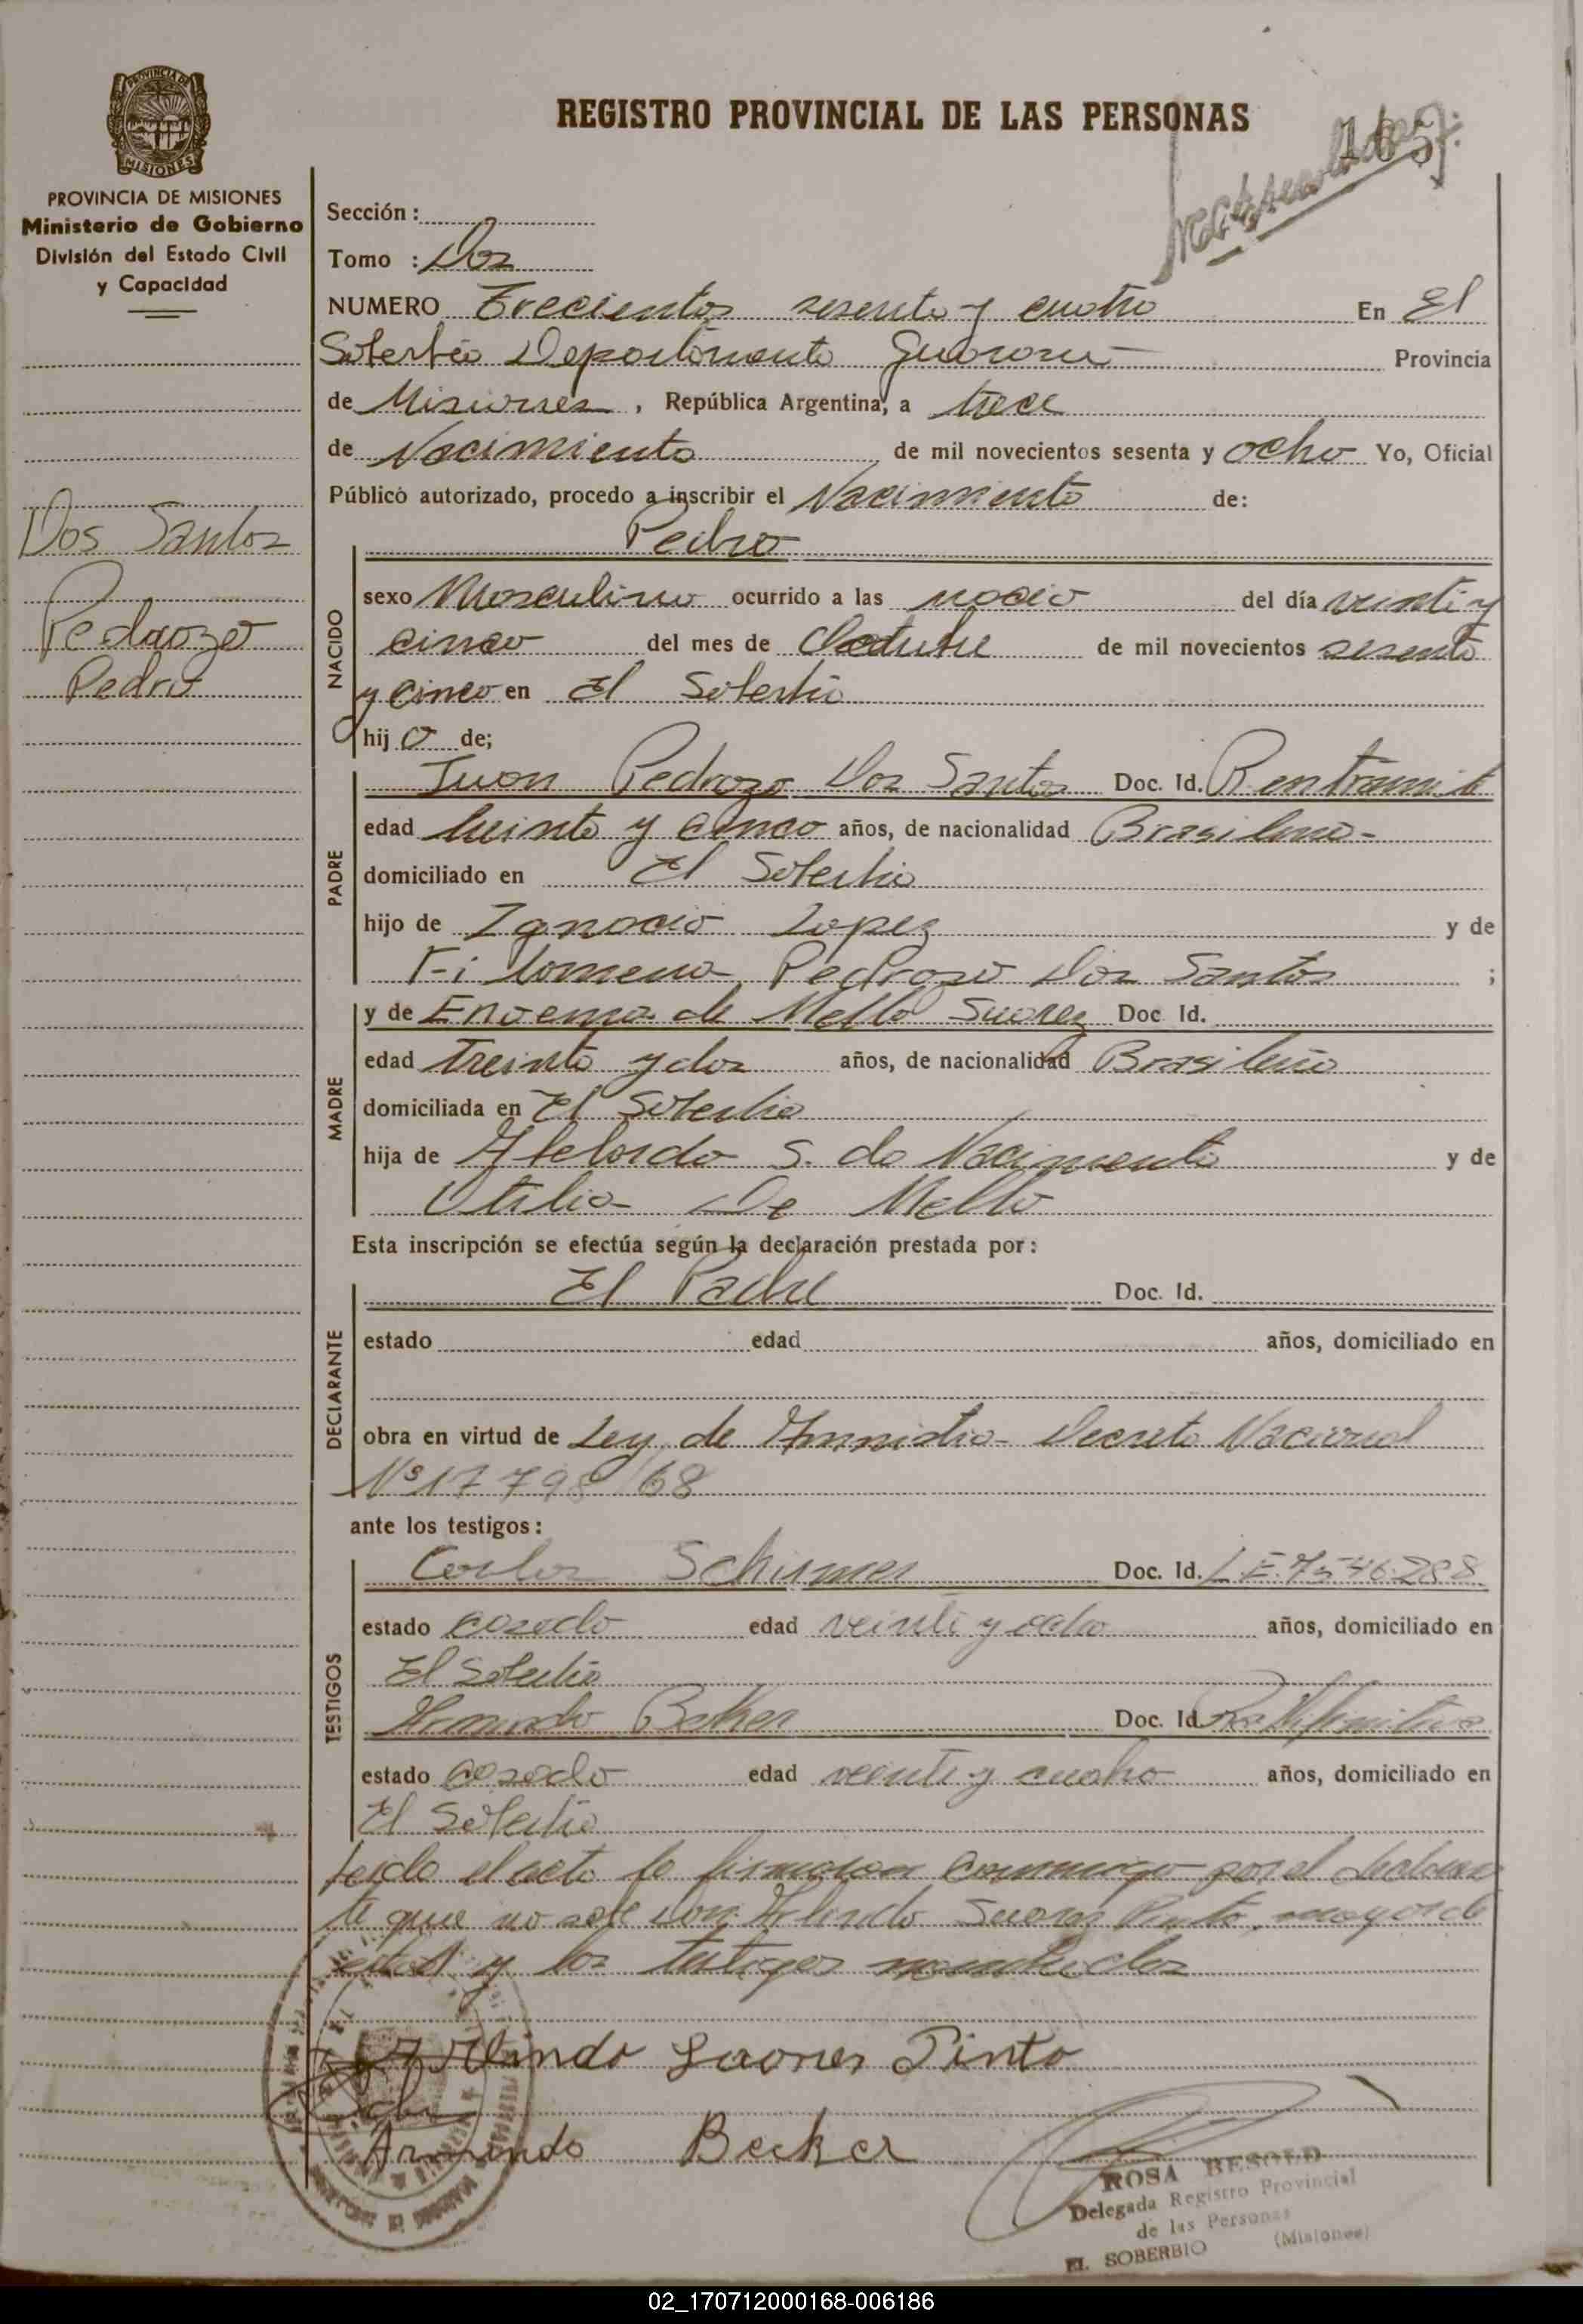 REGISTRO PROVINCIAL DE LAS PERSONAS
165
PROVINCIA DE MISIONES
Ministerio de Gobierno
División del Estado Civil
y Capacidad
Sección :
Tomo : Dos
NUMERO Trecientos sesenta y cuatro En El
Soberbio Departamento Guarani Provincia
de Misiones, República Argentina, a trece
de Nacimiento de mil novecientos sesenta y ocho Yo, Oficial
Público autorizado, procedo a inscribir el Nacimiento de:
Dos Santos
Pedrozo
Pedro
NACIDO
Pedro
sexo Masculino ocurrido a las del día veinti y
cinco del mes de Octubre de mil novecientos sesenta
y cinco en El Soberbio
hij o de;
PADRE
Juan Pedrozo Dos Santos Doc. Id. R. en tramite
edad treinta y cinco años, de nacionalidad Brasileña-
domiciliado en El Soberbio
hijo de Ignacio Lopez y de
Filomena Pedrozo Dos Santos ;
MADRE
y de de Mello Suarez Doc Id.
edad treinta y dos años, de nacionalidad Brasileña
domiciliada en El Soberbio
hija de S. do Nacimento y de
Otilia De Mello
Esta inscripción se efectúa según la declaración prestada por :
DECLARANTE
El Padre Doc. Id.
estado edad años, domiciliado en
obra en virtud de Ley de Amnistia- Decreto Nacional
Nº 17798/68
ante los testigos :
TESTIGOS
Carlos Doc. Id. L.E. 7.546.288
estado casado edad veinti y ocho años, domiciliado en
El Soberbio
Armindo Beker Doc. Id.
estado casado edad veinti y cuatro años, domiciliado en
El Soberbio
Leida el acta la firmaran conmigo por el declaran
te que no sabe Don Arlindo Suarez Pinto, mayor de
edad y los testigos nombrados
Arlindo Soares Pinto
Armindo Becker
ROSA BESOLD
Delegada Registro Provincial
de las Personas
EL SOBERBIO (Misiones)
02_170712000168-006186